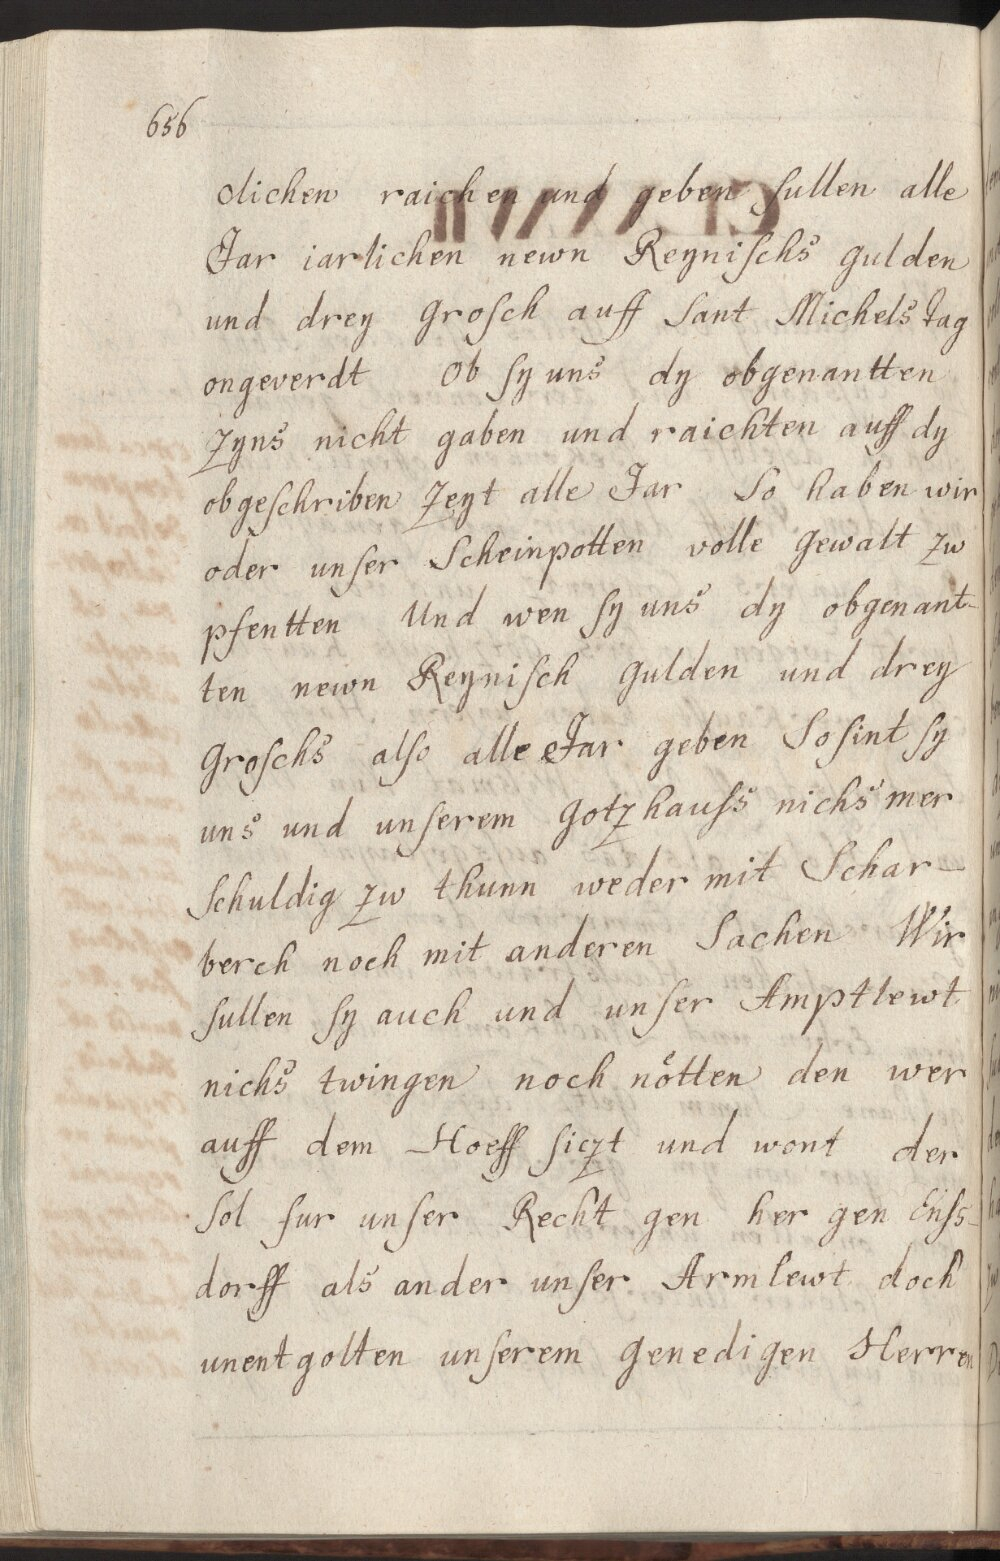 656
dlichen raichen und geben sullen alle
Jar iarlichen newn Reynischs gulden
und drey grosch auff sant Michels tag
ongeverdt Ob sy uns dy obgenantten
zyns nicht gaben und raichten auff dy
obgeschriben zeyt alle Jar So haben wir
oder unser Scheinpotten volle gewalt zw
pfentten Und wen sy uns dy obgenant-
ten newn Reynisch gulden und drey
groschs also alle Jar geben So sint sy
uns und unserem gotzhauss nichs mer
schuldig zw thunn weder mit Schar-
berch noch mit anderen Sachen Wir
sullen sy auch und unser Amptlewt
nichs twingen noch nötten den wer
auff dem Hoeff siczt und wont der
sol fur unser Recht gen her gen Enss-
dorff als ander unser Armlewt doch
unentgolten unserem genedigen Herren